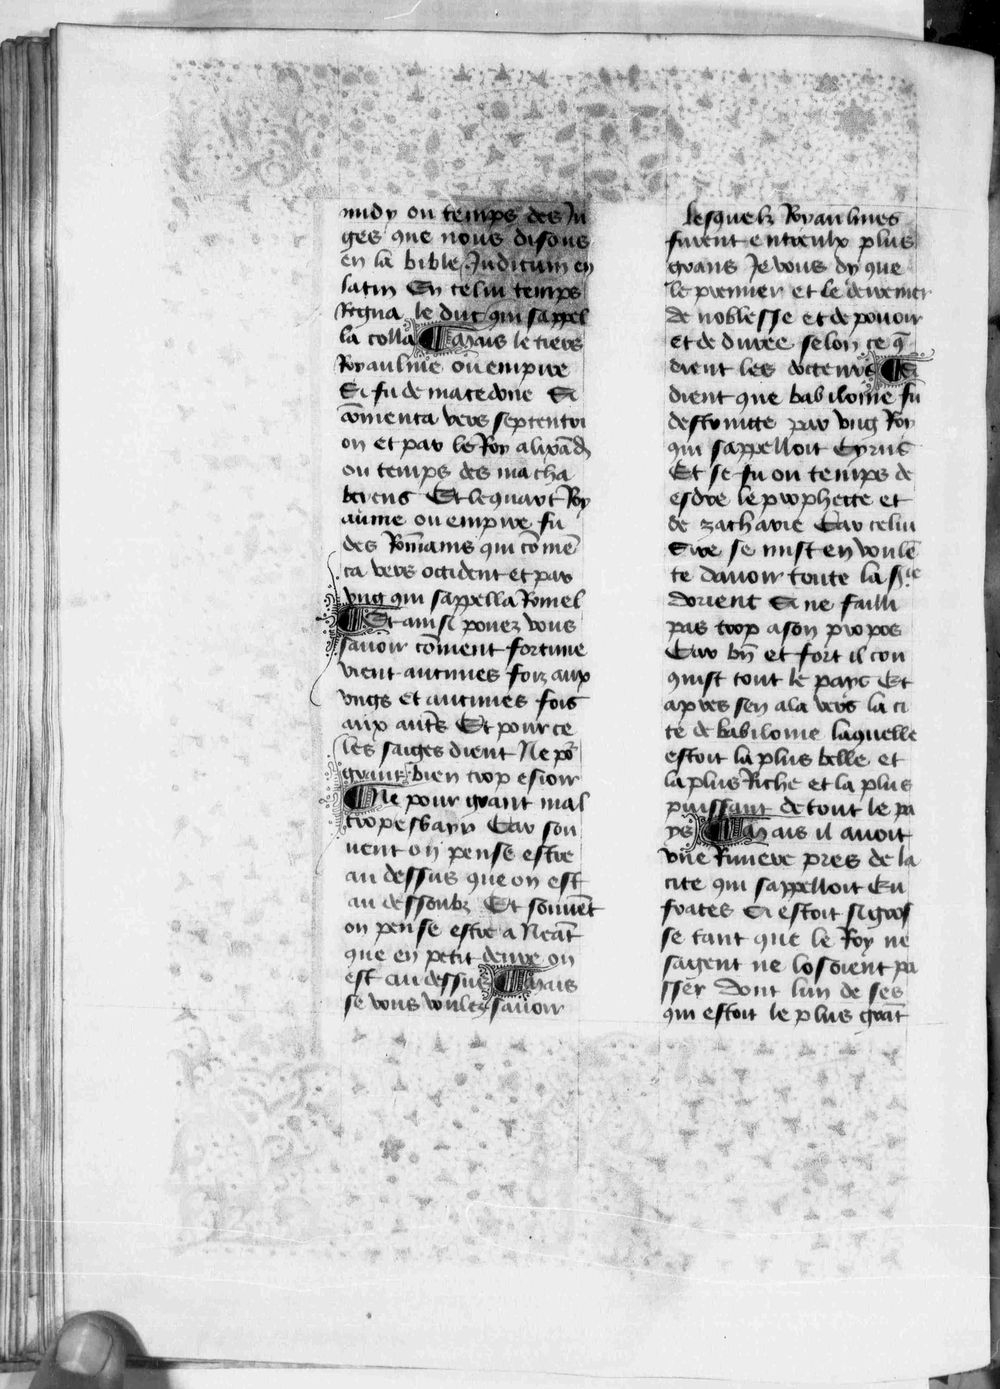 midy ou temps des Iu
ges que nous disons
en la bible Iudicum en
latin En celui temps
Regna le duc qui sappel
la colla Mais le tiers
Royaulme ou empire
Si fu de macedone Si
cōmenca vers septentri
on et par le Roy alixād
ou temps des macha
beiens Et le quart Roy
aume ou empire fu
des Rommains qui cōmē
ca vers occident et par
vng qui sappella Romel
Et ainsi pouez vous
sauoir cōment fortune
vient aucunes foiz aux
vngs et aucunes fois
aux aut̄s Et pour ce
les saiges dient Ne po᷑
grant bien trop esioir
Ne pour grant mal
trop esbayr Car sou
uent on pense estre
au dessus que on est
au dessoubz Et souuēt
on pense estre a Neāt
que en petit deure on
est au dessus Mais
se vous voulez sauoir
lesquelz Royaulmes
furent entreulx plus
grans Je vous dy que
le premier et le derrenier
de noblesse et de pouoir
et de duree selon ce q̄
dient les docteurs Et
dient que babiloine fu
destruitte par vng Roy
qui sappelloit Cyrus
Et se fu ou temps de
esdre le prophette et
de zacharie Car celui
Sire se mist en voulē
te dauoir toute la s͛ie
dorient Si ne failli
pas trop a son propos
Car bn̄ et fort il con
quist tout le pays Et
apres sen ala vers la ci
te de babiloine laquelle
estoit la plus belle et
la plus Riche et la plus
puissant de tout le pa
ys Mais il auoit
vne Riuiere pres de la
cite qui sappelloit Eu
frates Si estoit si gros
se tant que le Roy ne
sa gent ne losoient pa
sser Dont lun de ses
qui estoit le plus grāt